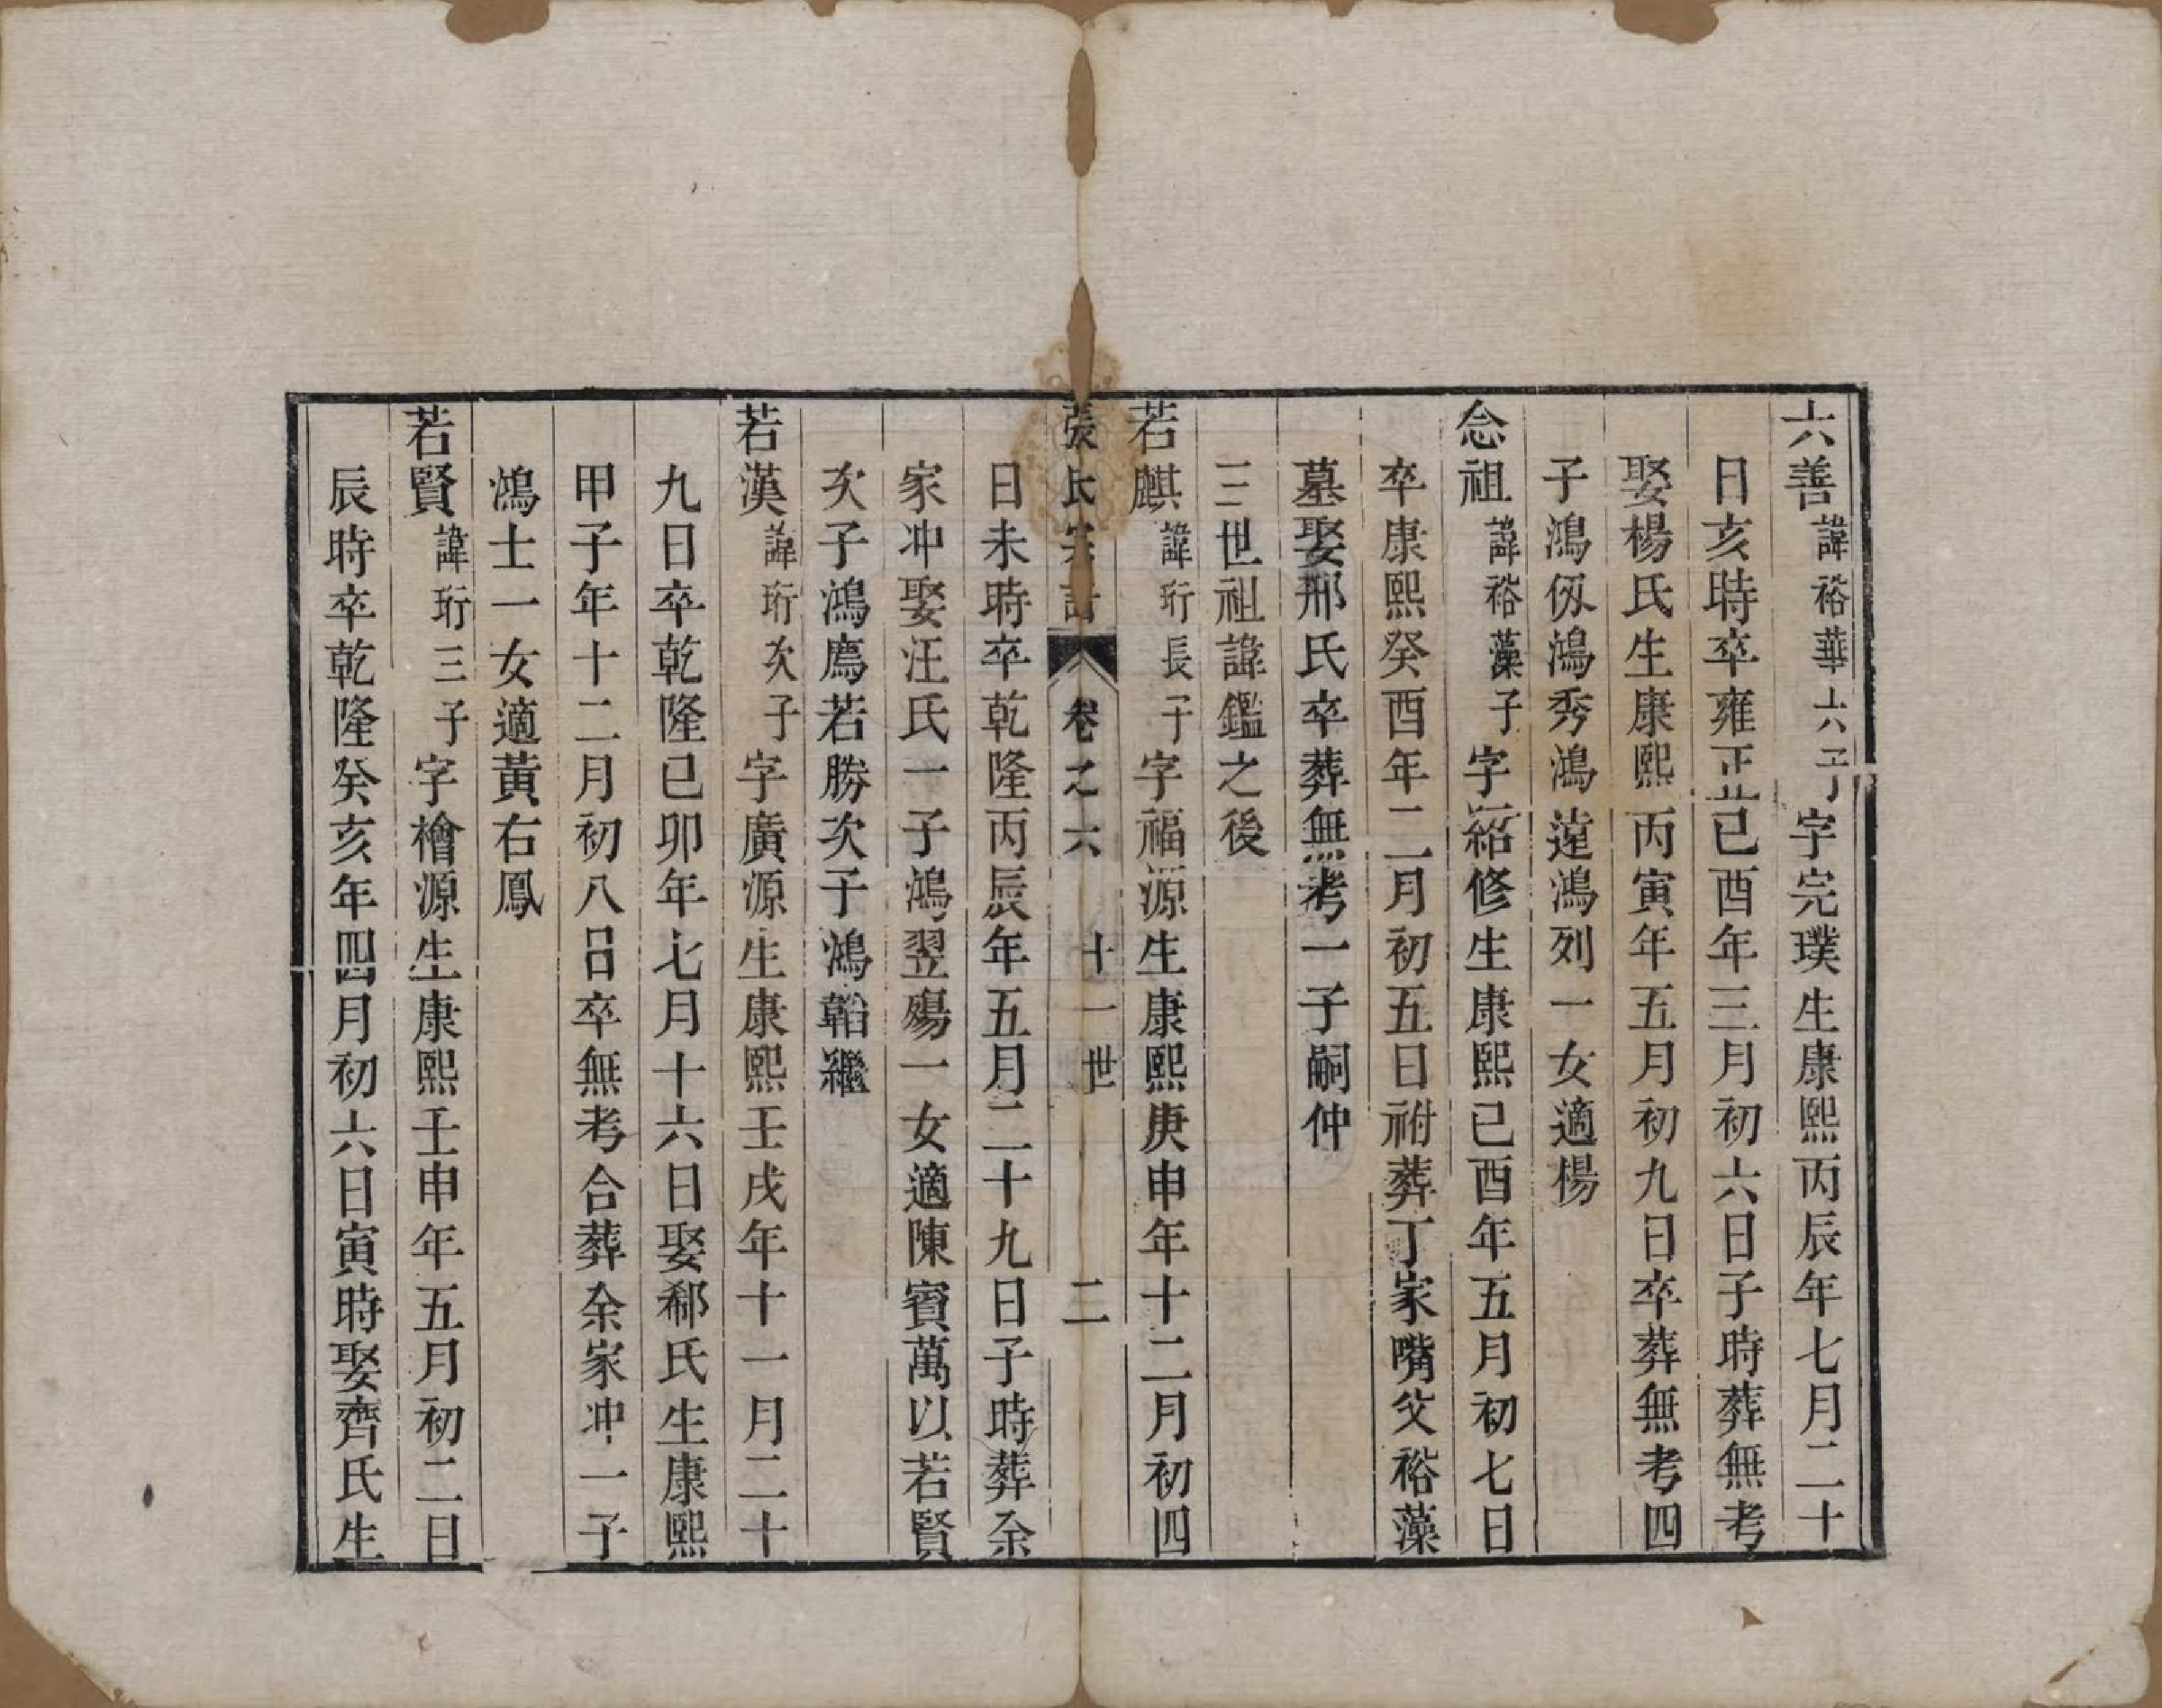 六善諱裕華六子字完璞生康熙丙辰年七月二十
日亥時卒雍正己酉年三月初六日子時葬無考
娶楊氏生康熙丙寅年五月初九日卒葬無考四
子鴻仭鴻秀鴻遠鴻列一女適楊
念祖諱裕藻子字紹修生康熙己酉年五月初七日
卒康熙癸酉年二月初五日祔葬丁家嘴父裕藻
墓娶邢氏卒葬無考一子嗣仲
三世祖諱鑑之後
若麒諱珩長子字福源生康熙庚申年十二月初四
張氏宗譜 卷之六 十一世 二
日未時卒乾隆丙辰年五月二十九日子時葬余
家冲娶汪氏一子鴻翌殤一女適陳賓萬以若賢
次子鴻鷹若勝次子鴻韜繼
若漢諱珩次子字廣源生康熙壬戌年十一月二十
九日卒乾隆己卯年七月十六日娶郗氏生康熙
甲子年十二月初八日卒無考合葬余家冲一子
鴻士一女適黃右鳳
若賢諱珩三子字檜源生康熙壬申年五月初二日
辰時卒乾隆癸亥年四月初六日寅時娶齊氏生